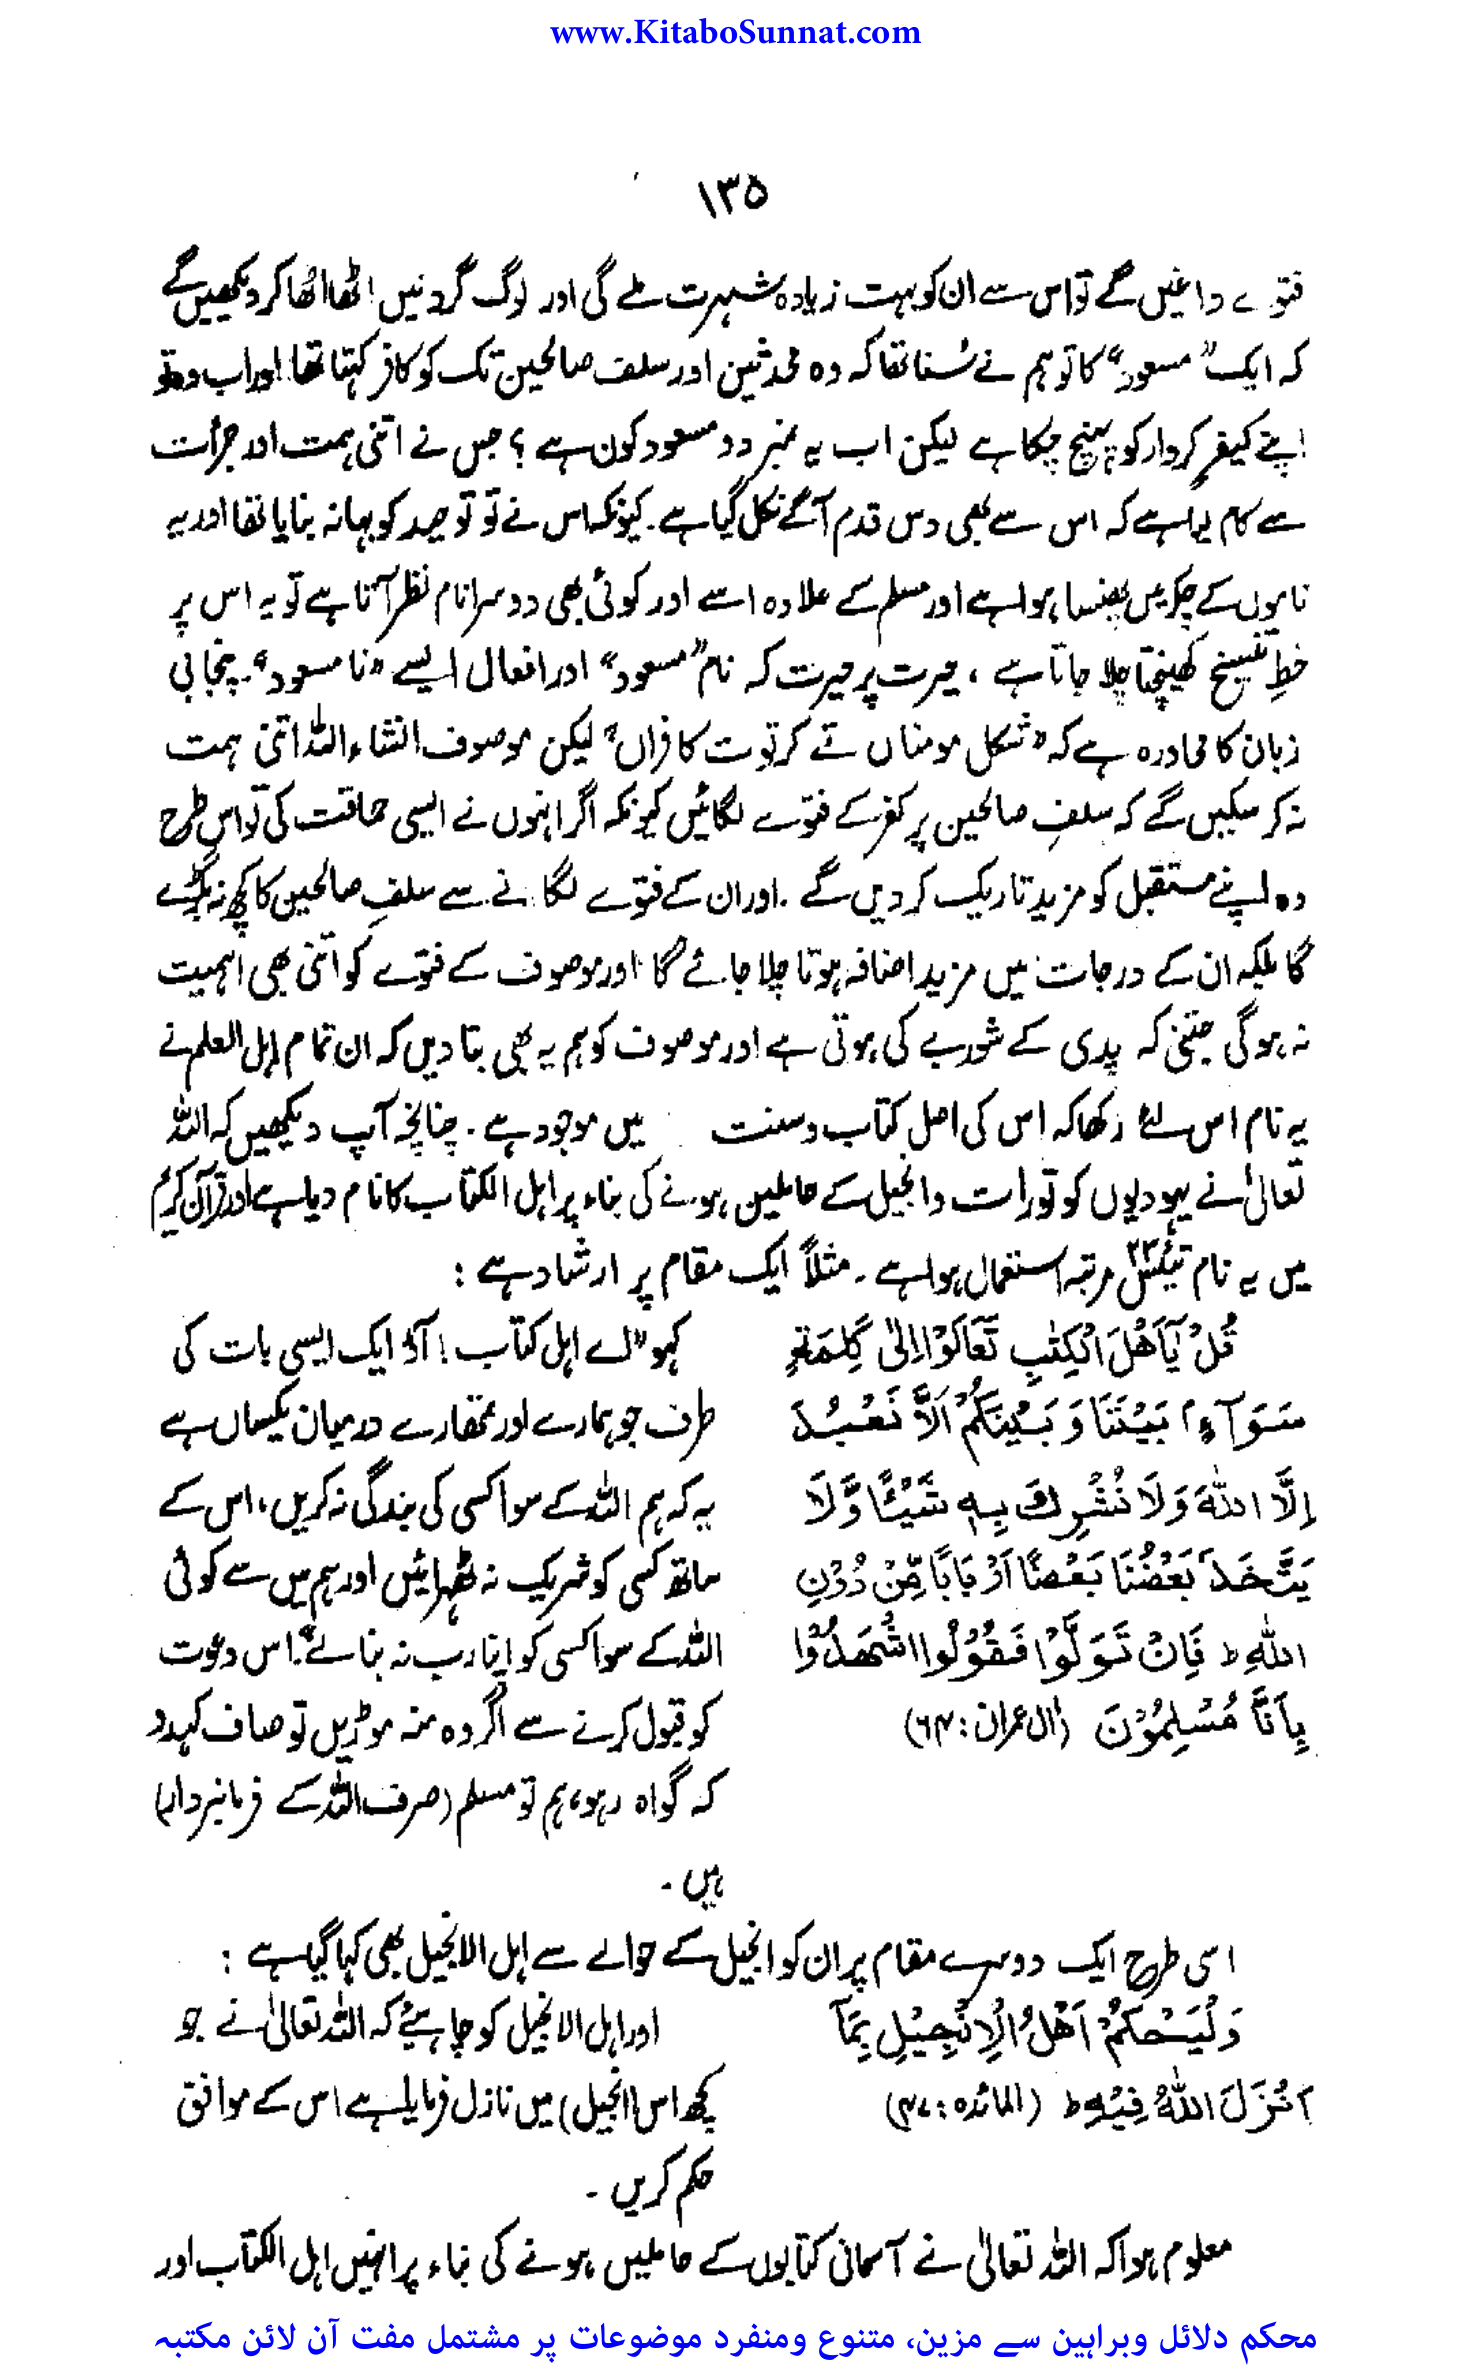 www.KitaboSunnat.com
۱۳۵
فتوے داغیں گے تو اس سے ان کو بہت زیادہ شہرت ملے گی اور لوگ گردنیں اٹھا اٹھا کر دیکھیں گے
کہ ایک "مسعود" کا تو ہم نے سُنا تھا کہ وہ محدثین اور سلف صالحین تک کو کافر کہتا تھا اور اب وہ تو
اپنے کیفرِ کردار کو پہنچ چکا ہے لیکن اب یہ نمبر دو مسعود کون ہے ؟ جس نے اتنی ہمت اور جرأت
سے کام لیا ہے کہ اس سے بھی دس قدم آگے نکل گیا ہے۔ کیونکہ اس نے تو توحید کو بہانہ بنایا تھا اور یہ
ناموں کے چکر میں پھنسا ہوا ہے اور مسلم کے علاوہ اسے اور کوئی بھی دوسرا نام نظر آتا ہے تو یہ اس پر
خطِ تنسیخ کھینچتا چلا جاتا ہے ، حیرت پر حیرت کہ نام "مسعود" اور افعال ایسے "نا مسعود"۔ پنجابی
زبان کا محاورہ ہے کہ "شکل مومناں تے کرتوت کافراں" لیکن موصوف انشاء اللہ اتنی ہمت
نہ کر سکیں گے کہ سلفِ صالحین پر کفر کے فتوے لگائیں کیونکہ اگر انہوں نے ایسی حماقت کی تو اس طرح
وہ اپنے مستقبل کو مزید تاریک کر دیں گے ۔ اور ان کے فتوے لگانے سے سلفِ صالحین کا کچھ نہ بگڑے
گا بلکہ ان کے درجات میں مزید اضافہ ہوتا چلا جائے گا اور موصوف کے فتوے کو اتنی بھی اہمیت
نہ ہوگی جتنی کہ پدی کے شوربے کی ہوتی ہے اور موصوف کو ہم یہ بھی بتا دیں کہ ان تمام اہل العلم نے
یہ نام اس لئے رکھا کہ اس کی اصل کتاب و سنت میں موجود ہے ۔ چنانچہ آپ دیکھیں کہ اللہ
تعالیٰ نے یہودیوں کو تورات و انجیل کے حاملین ہونے کی بناء پر اہل الکتاب کا نام دیا ہے اور قرآن کریم
میں یہ نام تیئس ۲۳ مرتبہ استعمال ہوا ہے ۔ مثلاً ایک مقام پر ارشاد ہے :
قُلْ يٰٓاَهْلَ الْكِتٰبِ تَعَالَوْا اِلٰى كَلِمَةٍ
سَوَآءٍ بَيْنَنَا وَ بَيْنَكُمْ اَلَّا نَعْبُدَ
اِلَّا اللّٰهَ وَلَا نُشْرِكَ بِهٖ شَيْئًا وَّلَا
يَتَّخِذَ بَعْضُنَا بَعْضًا اَرْبَابًا مِّنْ دُوْنِ
اللّٰهِ ط فَاِنْ تَوَلَّوْا فَقُوْلُوا اشْهَدُوْا
بِاَنَّا مُسْلِمُوْنَ (اٰل عمران : ۶۴)
کہو "اے اہل کتاب ! آؤ ایک ایسی بات کی
طرف جو ہمارے اور تمھارے درمیان یکساں ہے
یہ کہ ہم اللہ کے سوا کسی کی بندگی نہ کریں، اس کے
ساتھ کسی کو شریک نہ ٹھہرائیں اور ہم میں سے کوئی
اللہ کے سوا کسی کو اپنا رب نہ بنائے"۔ اس دعوت
کو قبول کرنے سے اگر وہ منہ موڑیں تو صاف کہہ دو
کہ گواہ رہو، ہم تو مسلم (صرف اللہ کے فرمانبردار)
ہیں ۔
اسی طرح ایک دوسرے مقام پر ان کو انجیل کے حوالے سے اہل الانجیل بھی کہا گیا ہے :
وَلْيَحْكُمْ اَهْلُ الْاِنْجِيْلِ بِمَآ
اَنْزَلَ اللّٰهُ فِيْهِ ط (المائدہ : ۴۷)
اور اہل الانجیل کو چاہیئے کہ اللہ تعالیٰ نے جو
کچھ اس (انجیل) میں نازل فرمایا ہے اس کے موافق
حکم کریں ۔
معلوم ہوا کہ اللہ تعالیٰ نے آسمانی کتابوں کے حاملین ہونے کی بناء پر انہیں اہل الکتاب اور
محکم دلائل وبراہین سے مزین، متنوع ومنفرد موضوعات پر مشتمل مفت آن لائن مکتبہ